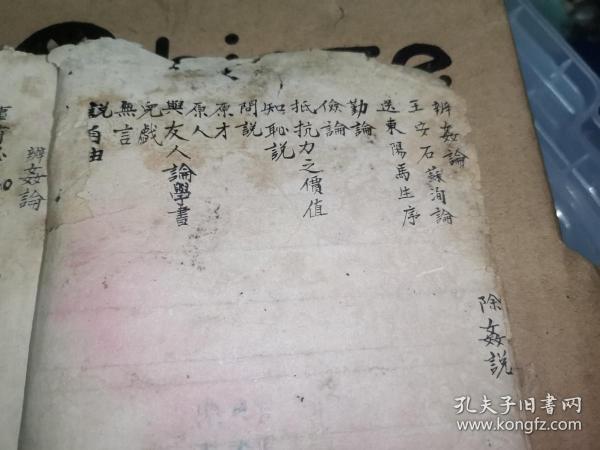 辨姦論
王安石蘇洵論
送東陽馬生序
勤論
儉論
抵抗力之價值
知恥説
問説
原才
原人
與友人論學書
兒戲
無言
説自由
除姦説
辨姦論
孔夫子旧書网
www.kongfz.com